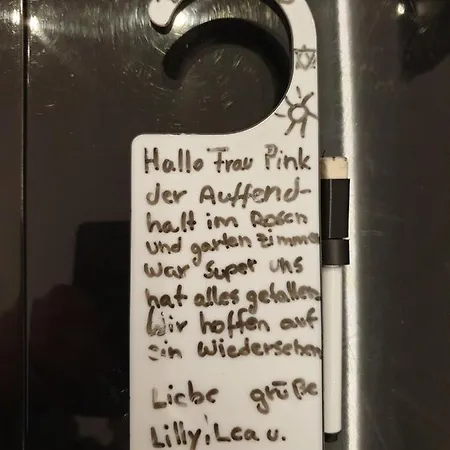 Hallo Frau Pink
der Auffend-
halt im Rosen
und garten zimmer
War super uns
hat alles gefallen
Wir hoffen auf
ein Wiedersehen
Liebe grüße
Lilly, Lea u.